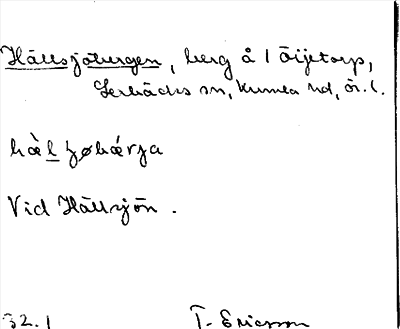 Hällsjöbergen, berg å 1 Öijetorp,
Lerbäcks sn, Kumla hd, Ör. l.
hæ̀l ʒøbǽrʒa
Vid Hällsjön.
32.1 T. Ericsson